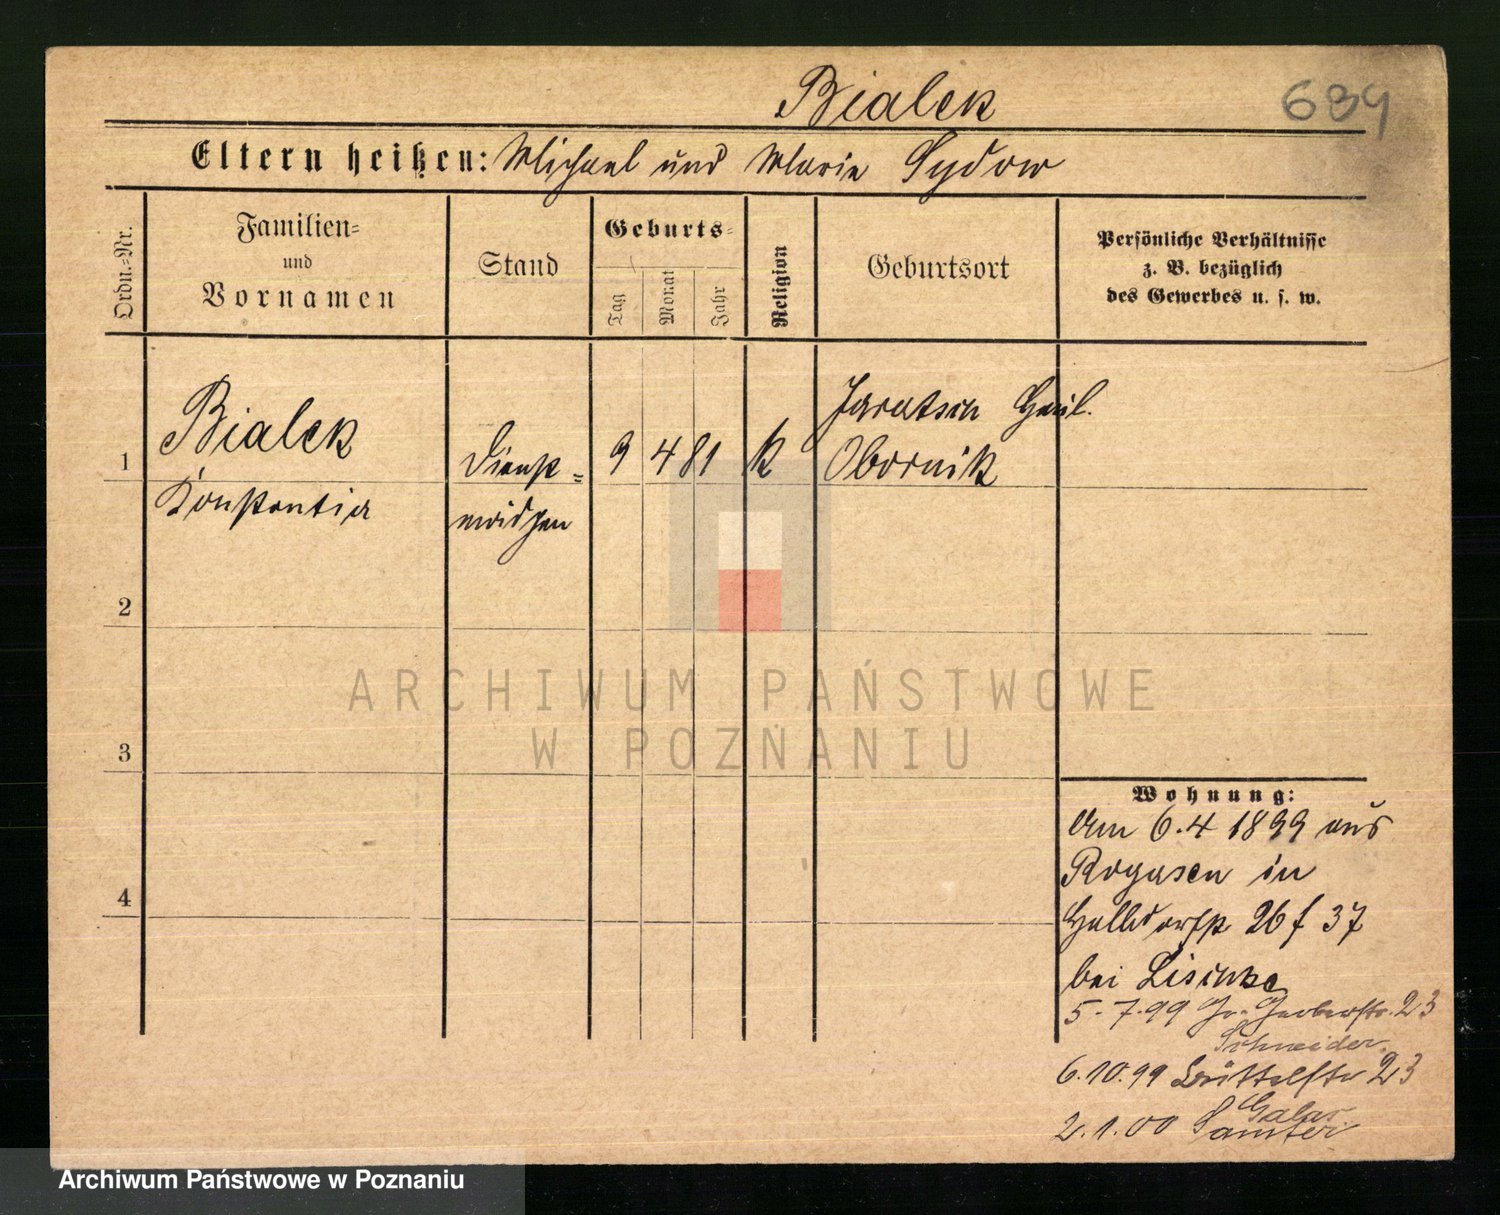 Bialek
639
Eltern heißen: Michael und Marie Sydow
Ordn.-Nr.
Familien-
und
Vornamen
Stand
Geburts-
Tag
Monat
Jahr
Religion
Geburtsort
Persönliche Verhältnisse
z. B. bezüglich
des Gewerbes u. s. w.
1
Bialek
Konstantia
Dienst-
mädchen
9 4 81
k
Obornik
2
3
4
ARCHIWUM PAŃSTWOWE
W POZNANIU
Wohnung:
Am 6.4 1899 aus
Rogasen in
Halbdorfstr 26 f 37
bei
5.7.99 Gr. Gerberstr. 23
Schneider.
6.10.99 Büttelstr 23
2.1.00 Samter
Archiwum Państwowe w Poznaniu